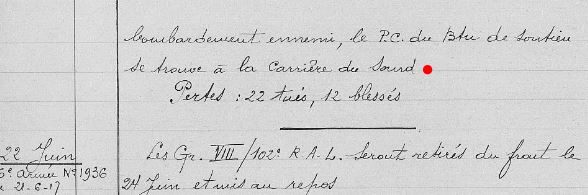 bombardement ennemi, le P.C. du Btn de soutien
se trouve à la Carrière du Sourd
Pertes : 22 tués, 12 blessés
22 Juin
Les Gr. VIII/102e R.A.L. seront retirés du front le
6e Armée No 1936
du 21-6-17
24 Juin et mis au repos